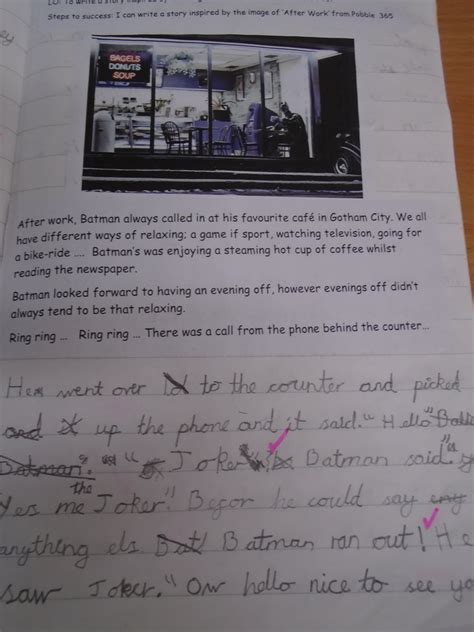 Steps to success: I can write a story inspired by the image of 'After Work' from Pobble 365
BAGELS
DONUTS
SOUP
After work, Batman always called in at his favourite café in Gotham City. We all
have different ways of relaxing; a game if sport, watching television, going for
a bike-ride .... Batman's was enjoying a steaming hot cup of coffee whilst
reading the newspaper.
Batman looked forward to having an evening off, however evenings off didn't
always tend to be that relaxing.
Ring ring ... Ring ring ... There was a call from the phone behind the counter...
He went over to the counter and picked
up the phone and it said." Hello"
Batman." " Joker" Batman said."
Yes me the Joker." Befor he could say
anything els Batman ran out! He
saw Joker." Ow hello nice to see yo